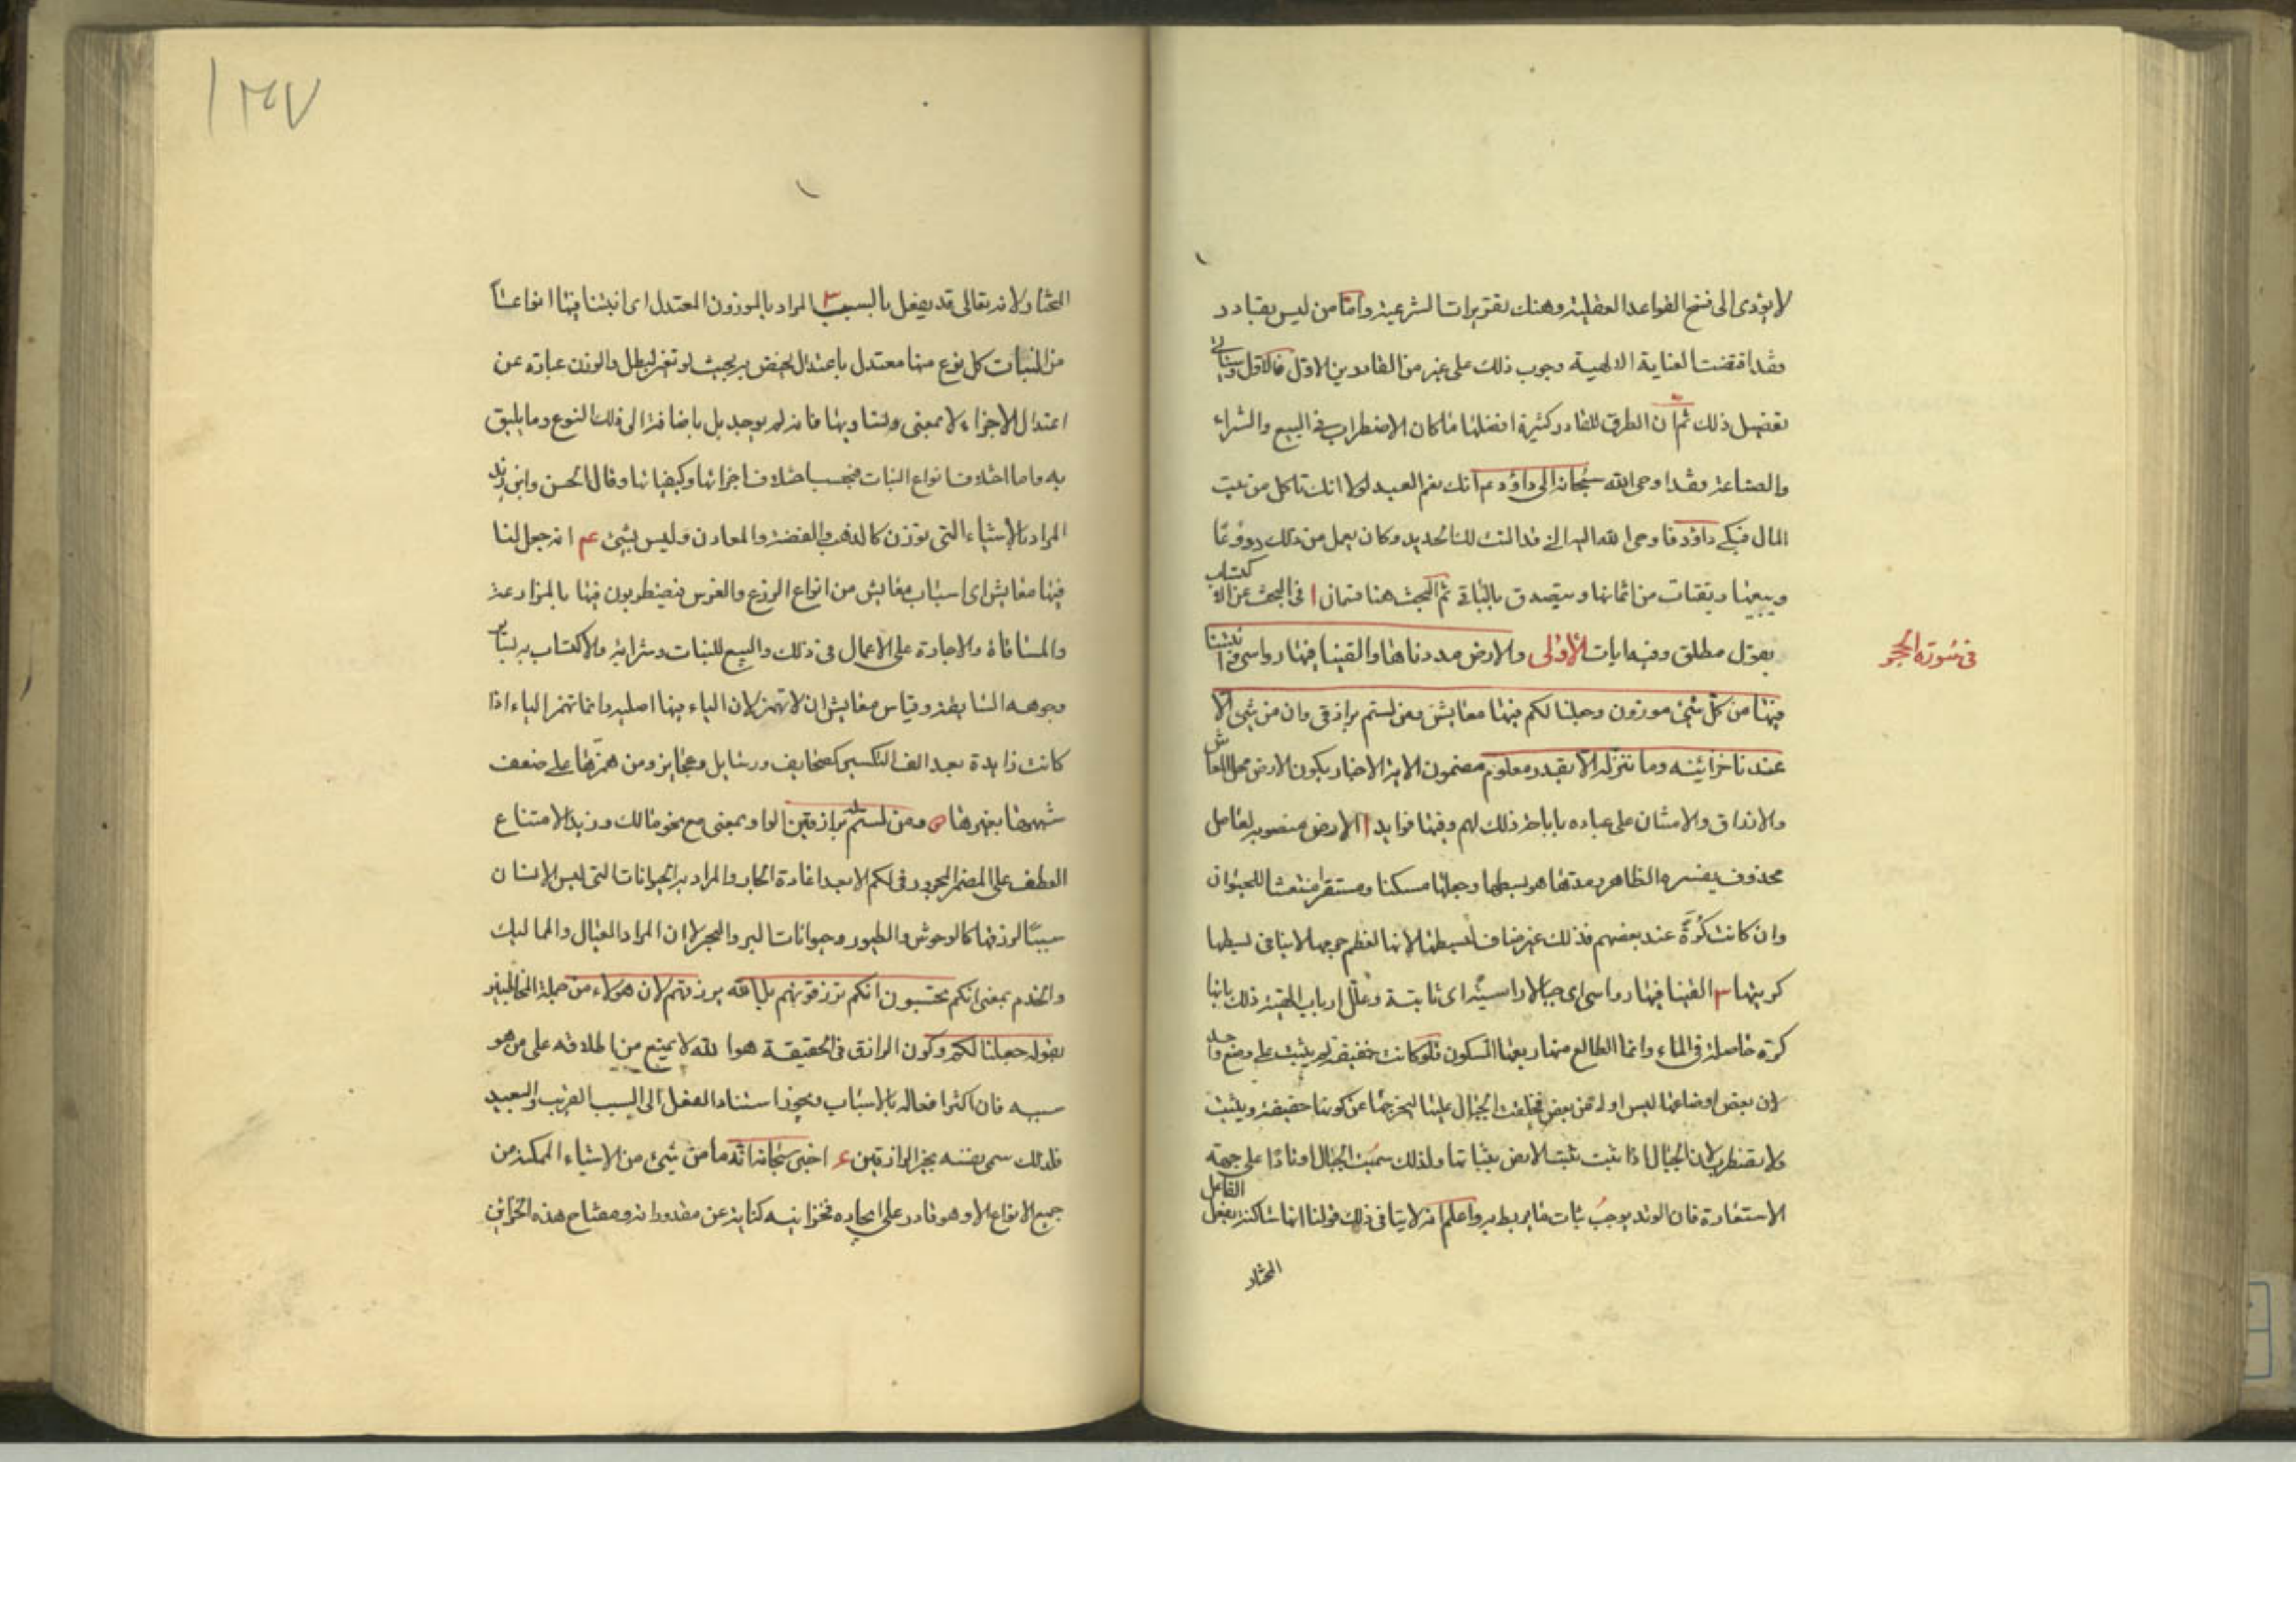 لا يؤدى الى فسخ القواعد العقلية وهتك تقريرات الشرعية واما من ليس بقادر
فقد اقتضت العناية الالهية وجوب ذلك على غيره من القادرين الاول فالاول وسيأتى
تفصيل ذلك ثم ان الطرق للقادر كثيرة افضلها ما كان الاضطراب فى البيع والشراء
والصناعة فقد اوحى الله سبحانه الى داود عم انك نعم العبد لولا انك تاكل من بيت
المال فبكى داود فاوحى الله اليه انى قد النت لك الحديد وكان يعمل من ذلك دروعا
ويبيعها ويقتات من اثمانها ويتصدق بالباقى ثم البحث هنا قسمان ا فى البحث عن الاكتساب
بقول مطلق وفيه ايات الاولى والارض مددناها والقينا فيها رواسى وانبتنا
فى سورة الحجر
فيها من كل شيئ موزون وجعلنا لكم فيها معايش ومن لستم له برازقين وان من شيئ الا
عندنا خزائنه وما ننزله الا بقدر معلوم مضمون الاية الاخبار بكون الارض محلا للمعاش
والارزاق والامتنان على عباده باباحة ذلك لهم وفيها فوايد ا الارض منصوبة بعامل
محذوف يفسره الظاهر ومدها هو بسطها وجعلها مسكنا ومستقرا ومنتعشا للحيوان
وان كانت كرة عند بعضهم فذلك غير مناف لبسطها لانها لعظم حجمها لا ينافى بسطها
كريتها القينا فيها رواسى اى جبالا راسية اى ثابتة وعلل ارباب الهيئة ذلك بانها
كرة حاصلة فى الماء وانما الطالع منها ربعها المسكون فلو كانت خفيفة لم يثبت على وضع واحد
لان بعض اوضاعها ليس اولى من بعض فخلقت الجبال عليها ليخرجها عن كونها خفيفة ويثبت
ولا يضطرب لان الجبال اذا ثبتت ثبت الارض بثباتها ولذلك سميت الجبال اوتادا على جهة
الاستعارة فان الوتد يوجب ثبات ما يربط به واعلم انه لا ينافى ذلك قولنا انها ساكنة بفعل الفاعل
المختار
١٣٤٧
المختار ولانه تعالى قد يفعل بالسبب ٣ المراد بالموزون المعتدل اى انبتنا فيها انواعا
من النبات كل نوع منها معتدل باعتدال يختص به بحيث لو تغير لبطل والوزن عبارة عن
اعتدال الاجزاء لا بمعنى تساويها فانه لم يوجد بل باضافته الى ذلك النوع وما يليق
به واما اختلاف انواع النبات فبحسب اختلاف اجزائها وكيفياتها وقال الحسن وابن زيد
المراد بالاشياء التى توزن كالذهب والفضة والمعادن وليس بشيئ عم انه جعل لنا
فيها معايش اى اسباب معايش من انواع الزرع والغرس فيضطربون فيها بالمزارعة
والمساقاة والاجارة على الاعمال فى ذلك والبيع للنبات وشرائه والاكتساب به بسائر
وجوهه السايغة وقياس معايش ان لا تهمز لان الياء فيها اصلية وانما تهمز الياء اذا
كانت زايدة بعد الف التكسير كصحايف ورسايل وعجايز ومن همزها على ضعف
شبهها بغيرها ومن لستم له برازقين الواو بمعنى مع نحو مالك وزيدا لامتناع
العطف على المضمر المجرور فى لكم الا بعد اعادة الجار والمراد به الحيوانات التى ليس الانسان
سببا لرزقها كالوحوش والطيور وحيوانات البر والبحر لا ان المراد العيال والمماليك
والخدم بمعنى انكم تحسبون انكم ترزقونهم بل الله يرزقهم لان هؤلاء من جملة المخاطبين
بقوله جعلنا لكم وكون الرازق فى الحقيقة هو الله لا يمنع من اطلاقه على من هو
سببه فان اكثر افعاله بالاسباب فيجوز استناد الفعل الى السبب القريب والبعيد
فلذلك سمى نفسه بخير الرازقين اخبر سبحانه انه ما من شيئ من الاشياء الممكنة من
جميع الانواع الا وهو قادر على ايجاده فخزائنه كناية عن مقدوراته ومفتاح هذه الخزائن